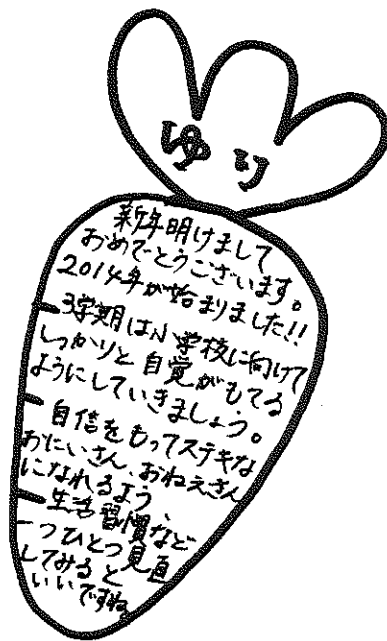 ゆり
新年明けまして
おめでとうございます。
2014年が始まりました!!
3学期は小学校に向けて
しっかりと自覚がもてる
ようにしていきましょう。
自信をもってステキな
おにいさん、おねえさん
になれるよう、
生活習慣など
一つひとつ見直
してみると
いいですね。